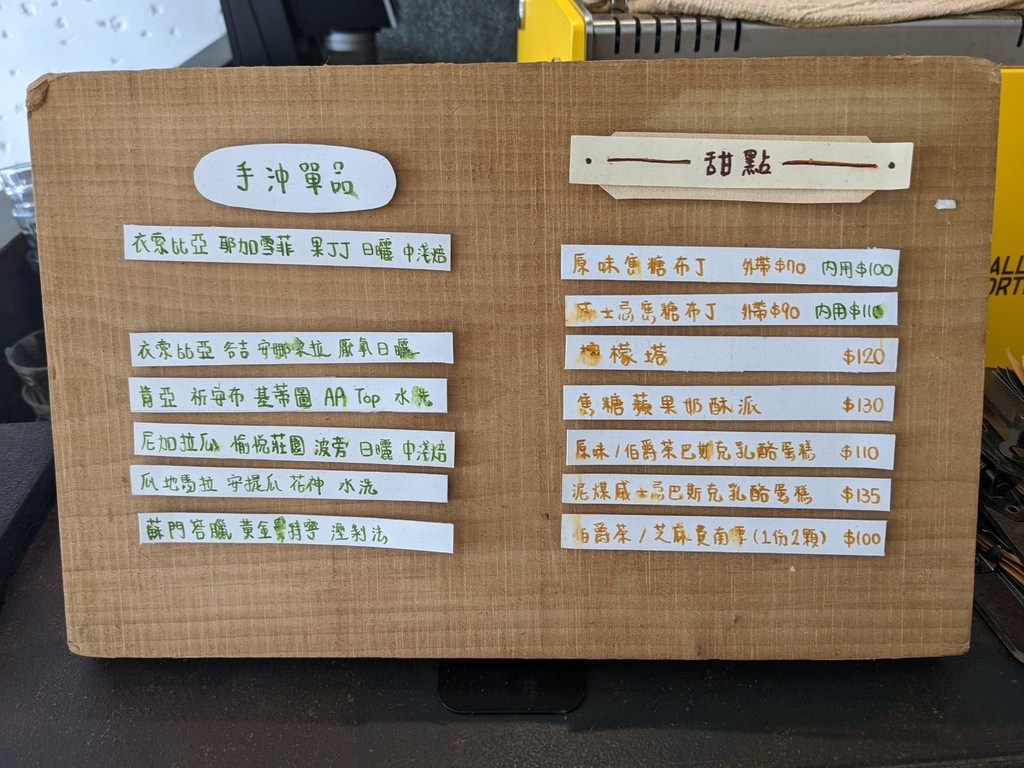 手沖單品
衣索比亞 耶加雪菲 果丁丁 日曬 中淺焙
衣索比亞 谷吉 安娜索拉 厭氧日曬
肯亞 祈安布 基蒂圖 AA Top 水洗
尼加拉瓜 愉悅莊園 波旁 日曬 中淺焙
瓜地馬拉 安提瓜 花神 水洗
蘇門答臘 黃金曼特寧 溼剝法
甜點
原味焦糖布丁 外帶$70 內用$100
威士忌焦糖布丁 外帶$90 內用$110
檸檬塔 $120
焦糖蘋果奶酥派 $130
原味/伯爵茶巴斯克乳酪蛋糕 $110
泥煤威士忌巴斯克乳酪蛋糕 $135
伯爵茶/芝麻費南雪(1份2顆) $100